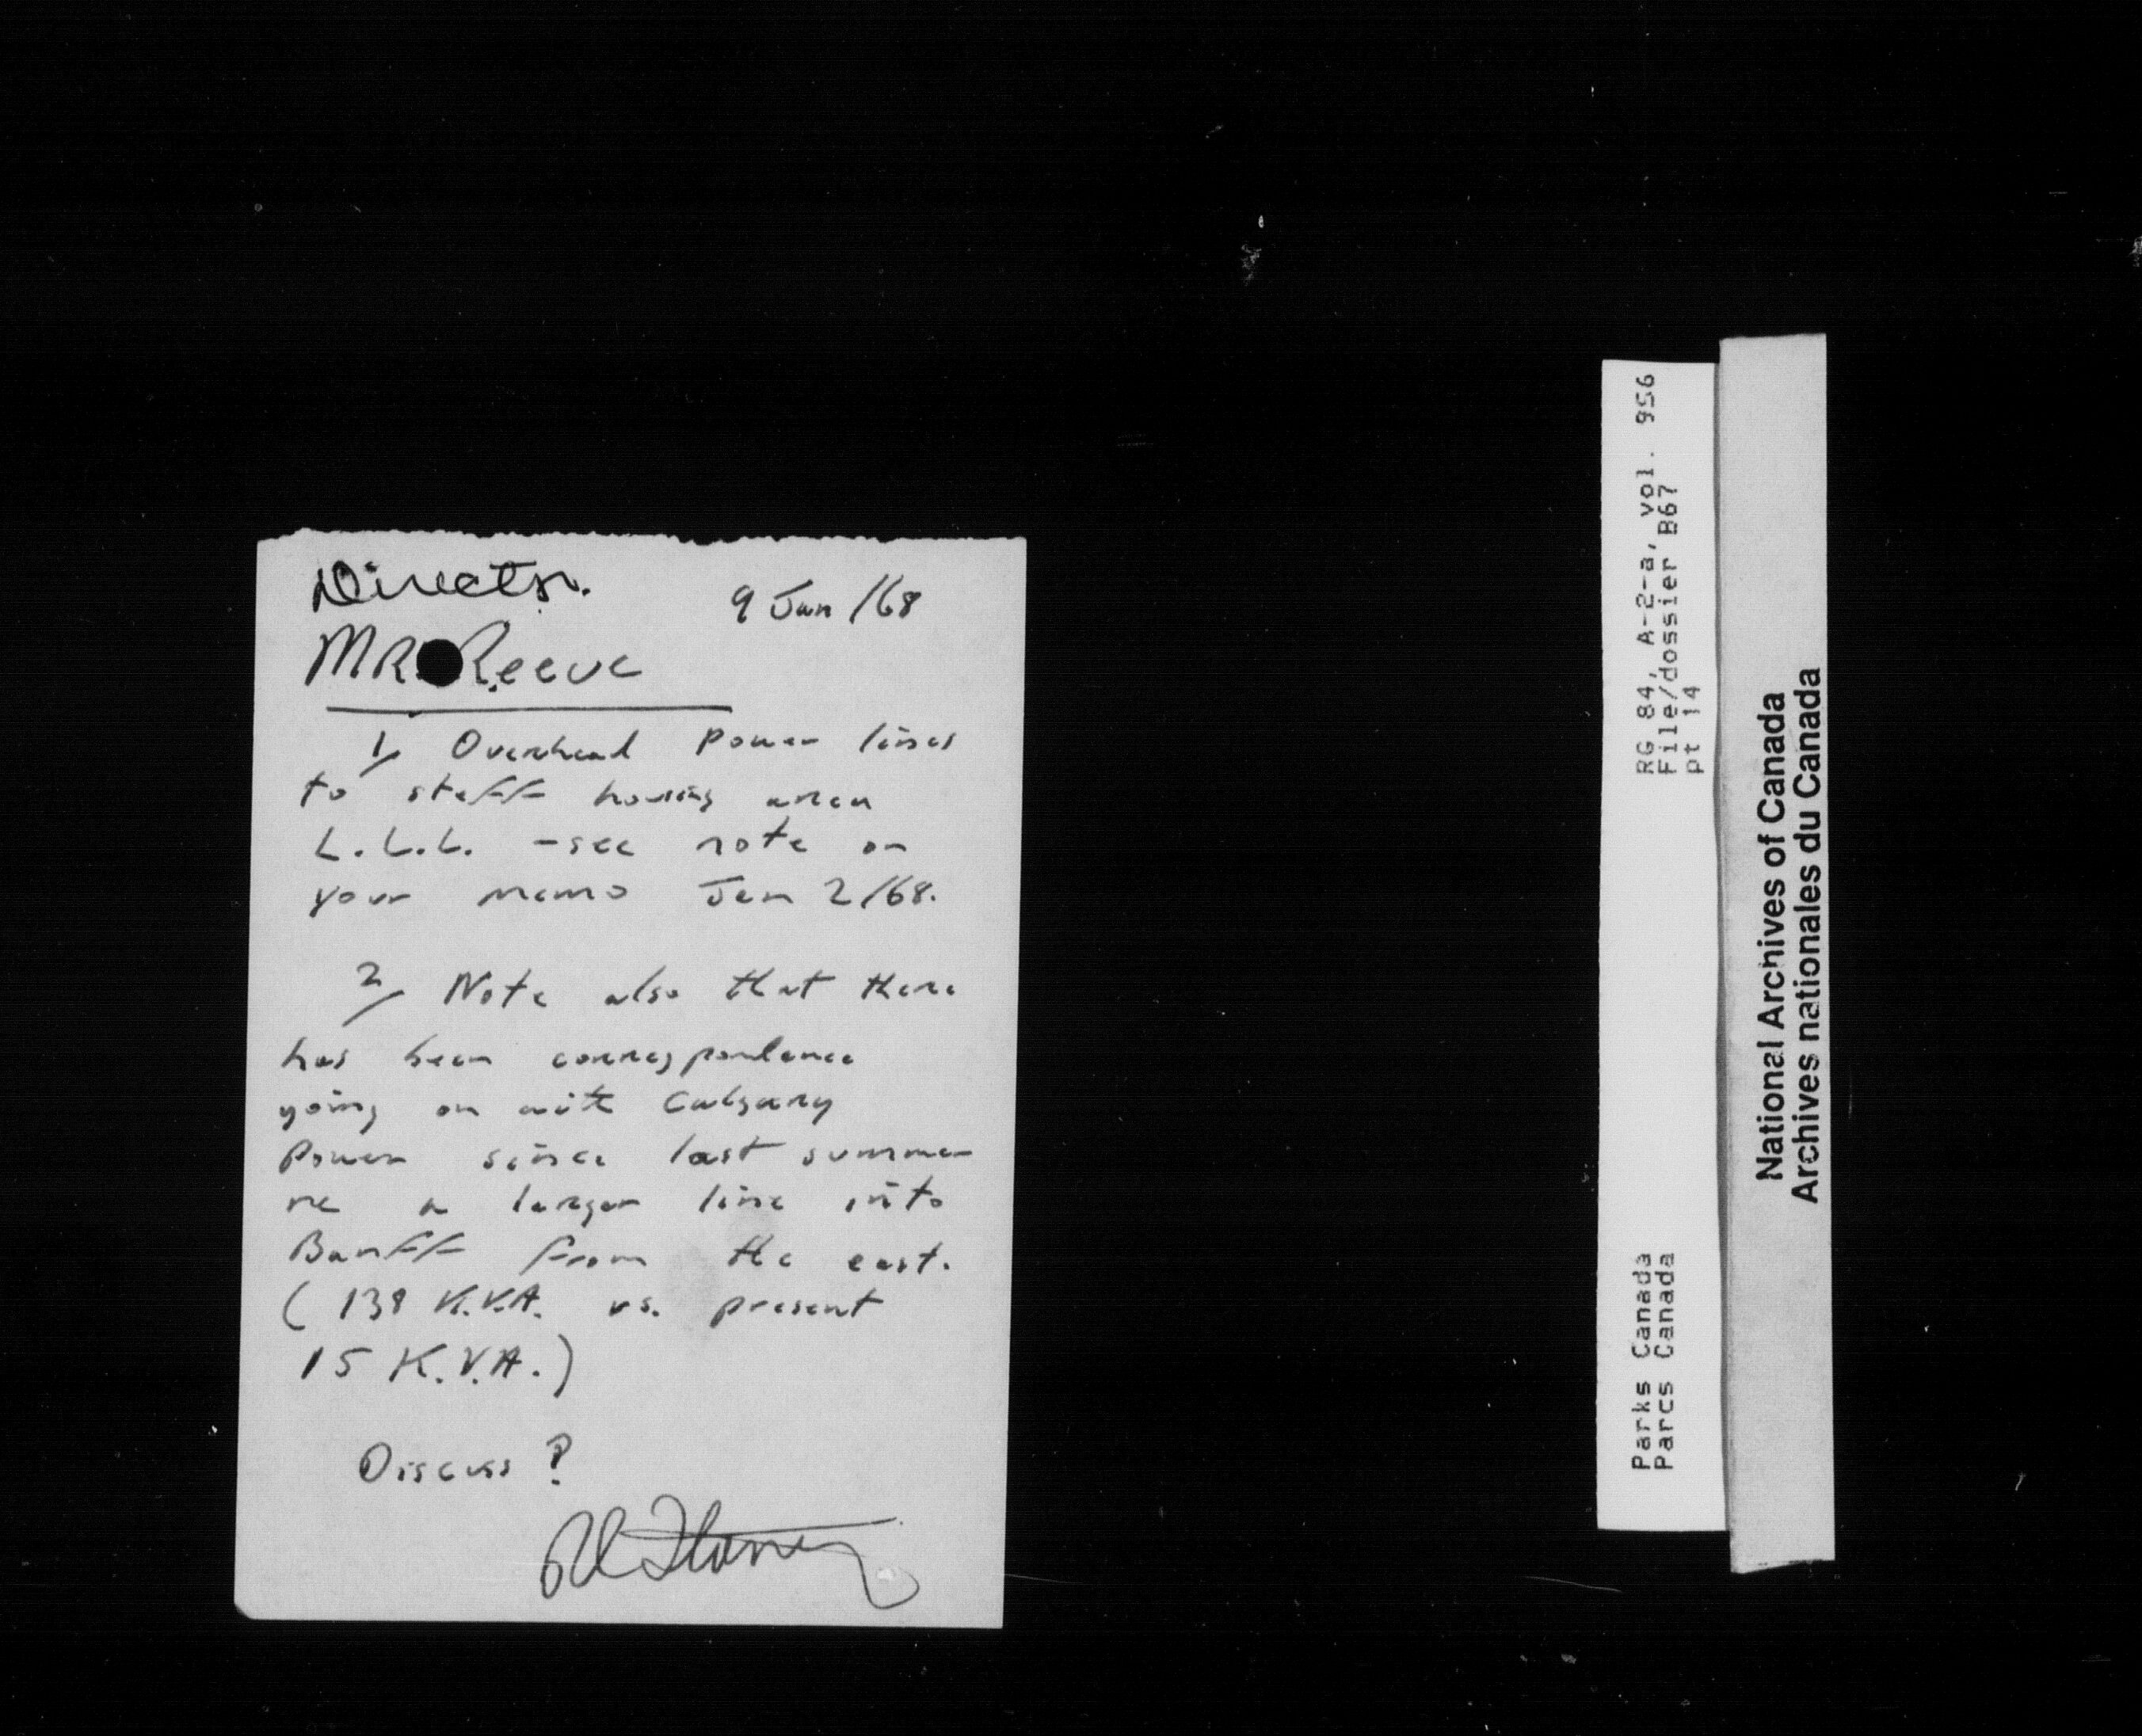 Director.
9 Jan /68
MR. Reeve
1/ Overhead power lines
to staff housing area
L.L.L. - see note on
your memo Jan 2/68.
2/ Note also that there
has been correspondence
going on with Calgary
Power since last summer
re a larger line into
Banff from the east.
(138 K.V.A. vs. present
15 K.V.A.)
Discuss?
RG 84, A-2-a, vol. 956
File/dossier B67
pt 14
Parks Canada
Parcs Canada
National Archives of Canada
Archives nationales du Canada